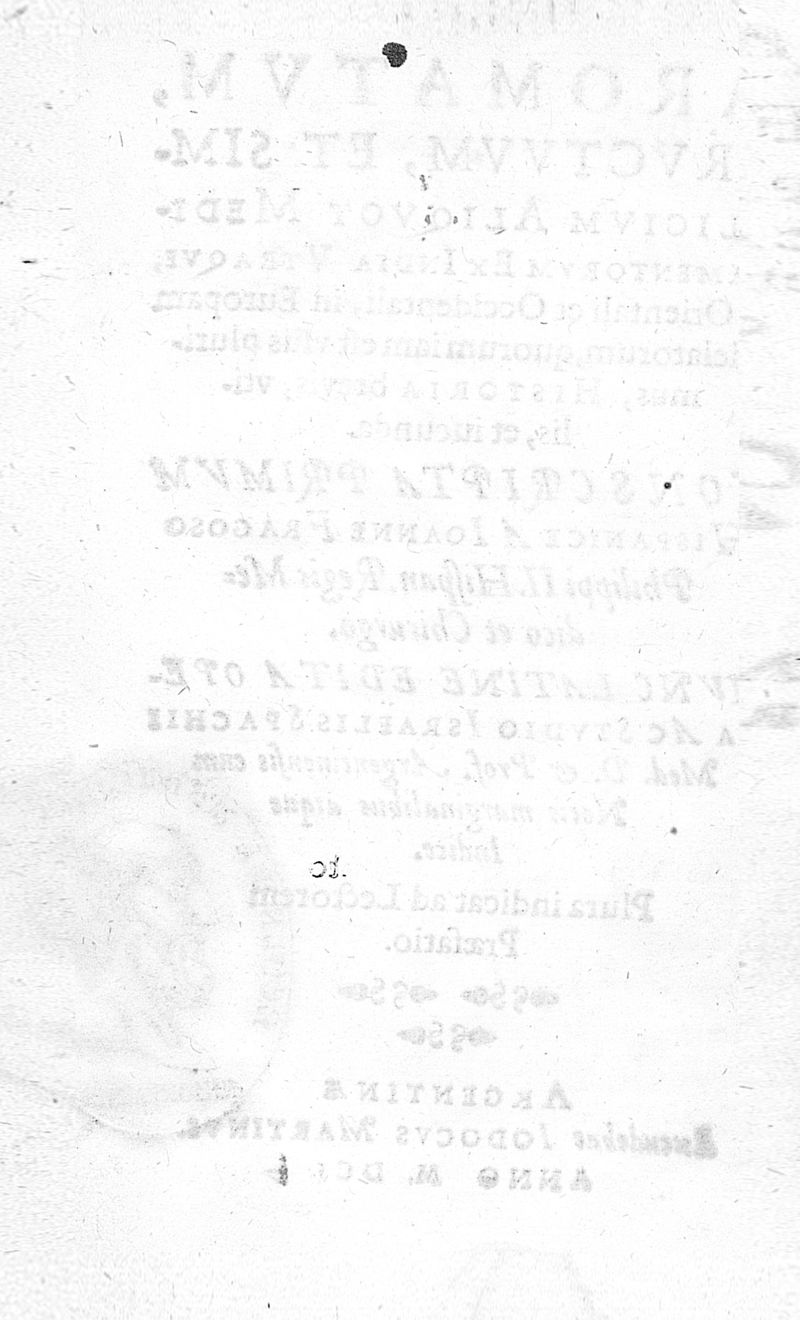 AROMATVM,
FRVCTVVM, ET SIM-
PLICIVM ALIQVOT MEDI-
CAMENTORVM EX INDIA VTRAQVE,
Orientali et Occidentali, in Europam
delatorum, quorum iam est vsus pluri-
mus, HISTORIA brevis, vti-
lis, et iucunda.
CONSCRIPTA PRIMVM
HISPANICE A IOANNE FRAGOSO
Philippi II. Hispan. Regis Me-
dico et Chirurgo,
NVNC LATINE EDITA OPE-
RA AC STVDIO ISRAELIS SPACHII
Med. D. & Prof. Argentinensis cum
Notis marginalibus atque
Indice.
Plura indicat ad Lectorem
Præfatio.
ARGENTINÆ
Excudebat IODOCVS MARTINVS.
ANNO M. DCI